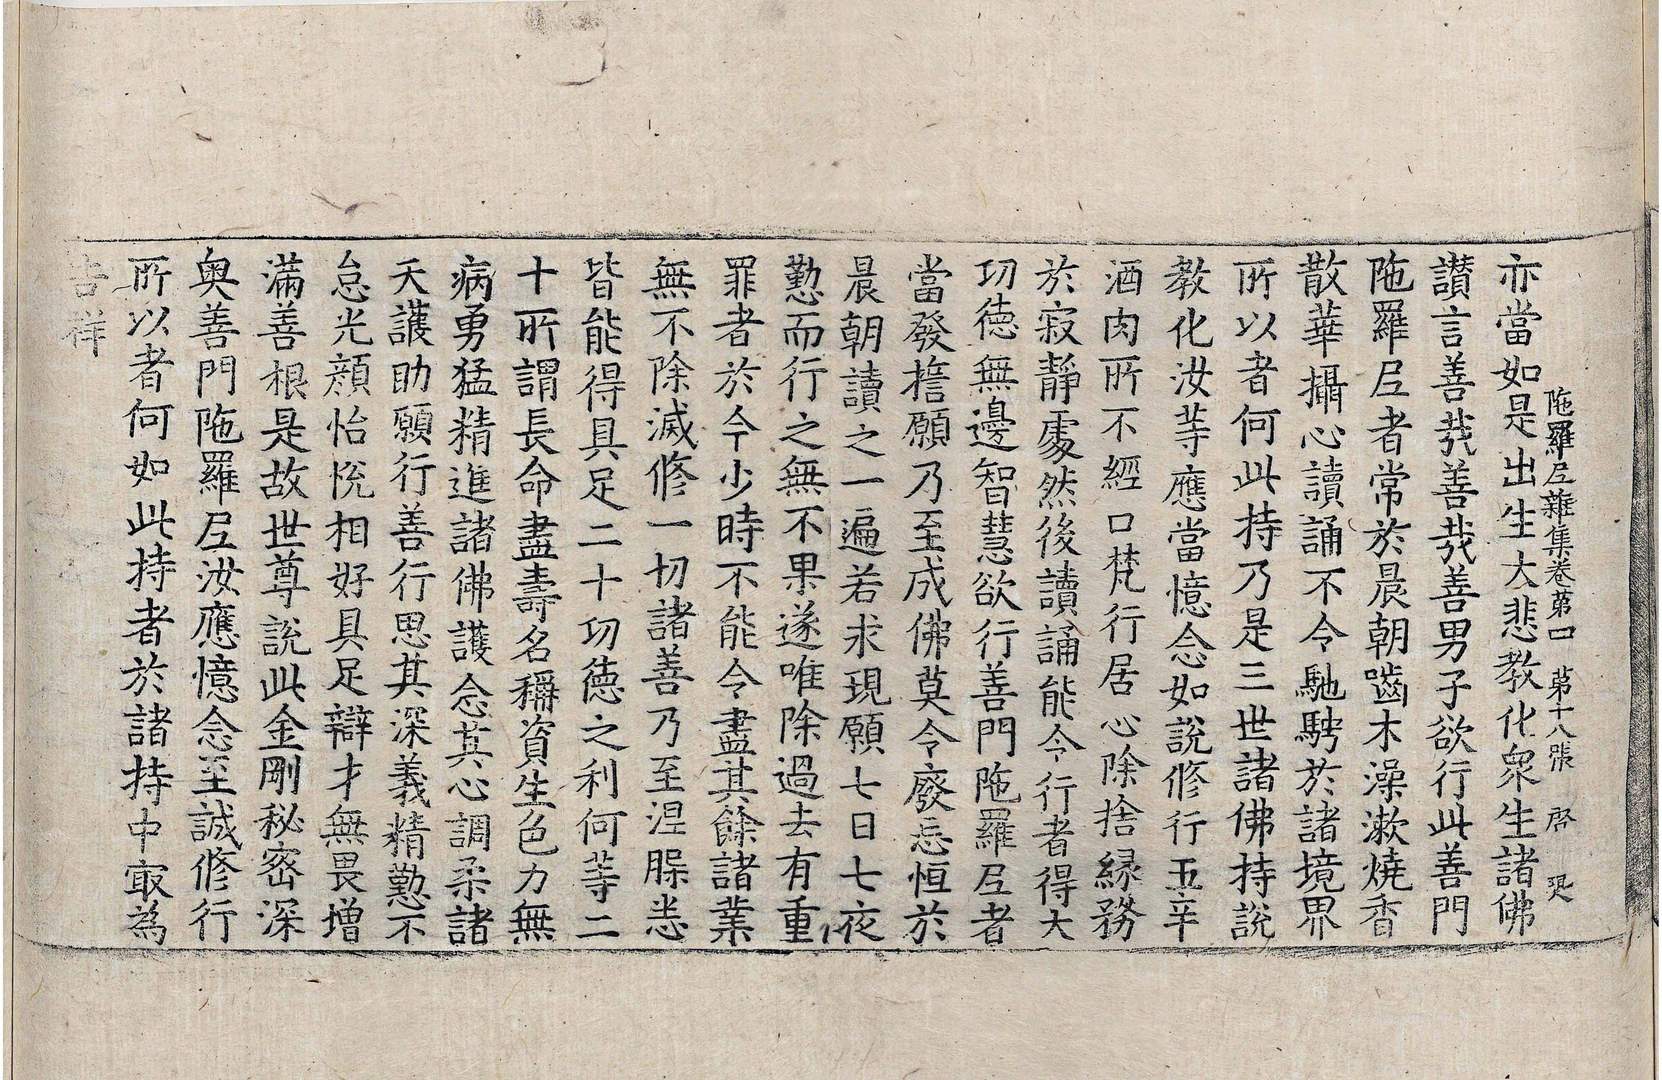 陁羅尼雜集卷苐四 苐十八張 啓
亦當如是出生大悲教化衆生諸佛
讃言善㢤善㢤善男子欲行此善門
陁羅尼者常於晨朝嚙木澡漱燒香
散華攝心讀誦不令馳騁於諸境界
所以者何此持乃是三世諸佛持說
教化汝䓁應當憶念如說修行五辛
酒肉所不經口梵行居心除捨緣務
於寂靜處然後讀誦能令行者得大
㓛德無邊智慧欲行善門陁羅尼者
當發誓願乃至成佛莫令廢忘恒於
晨朝讀之一遍若求現願七日七夜
懃而行之無不果遂唯除過去有重
罪者於今少時不能令盡其餘諸業
無不除滅修一切諸善乃至涅䏶恙
皆能得具足二十㓛德之利何䓁二
十所謂長命盡壽名稱資生色力無
病勇猛精進諸佛護念其心調柔諸
天護助願行善行思其深義精懃不
怠光顔怡悅相好具足辯才無畏增
滿善根是故世尊說此金剛秘密深
奥善門陁羅尼汝應憶念至誠修行
所以者何如此持者於諸持中㝡為
吉祥